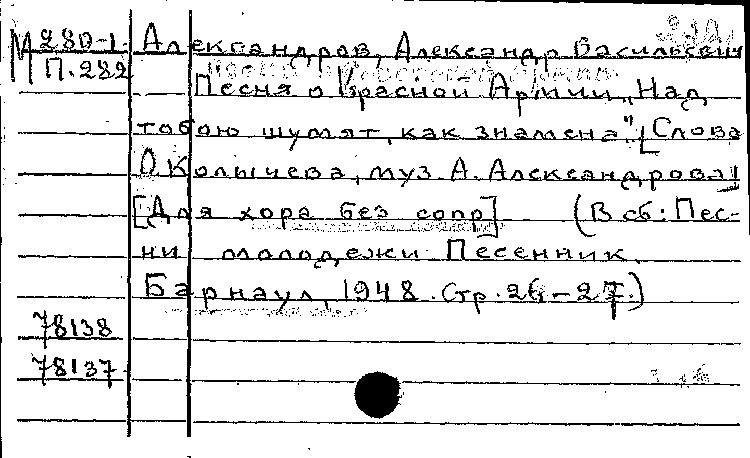 М 280-1 Александров, Александр Васильевич
П.282 Песня о Красной Армии „Над
тобою шумят, как знамена" [Слова
О. Колычева, муз. А. Александрова]
[Для хора без сопр] (В сб: Пес-
ни молодежи. Песенник.
Барнаул, 1948. Стр. 26-27.)
78138
78137